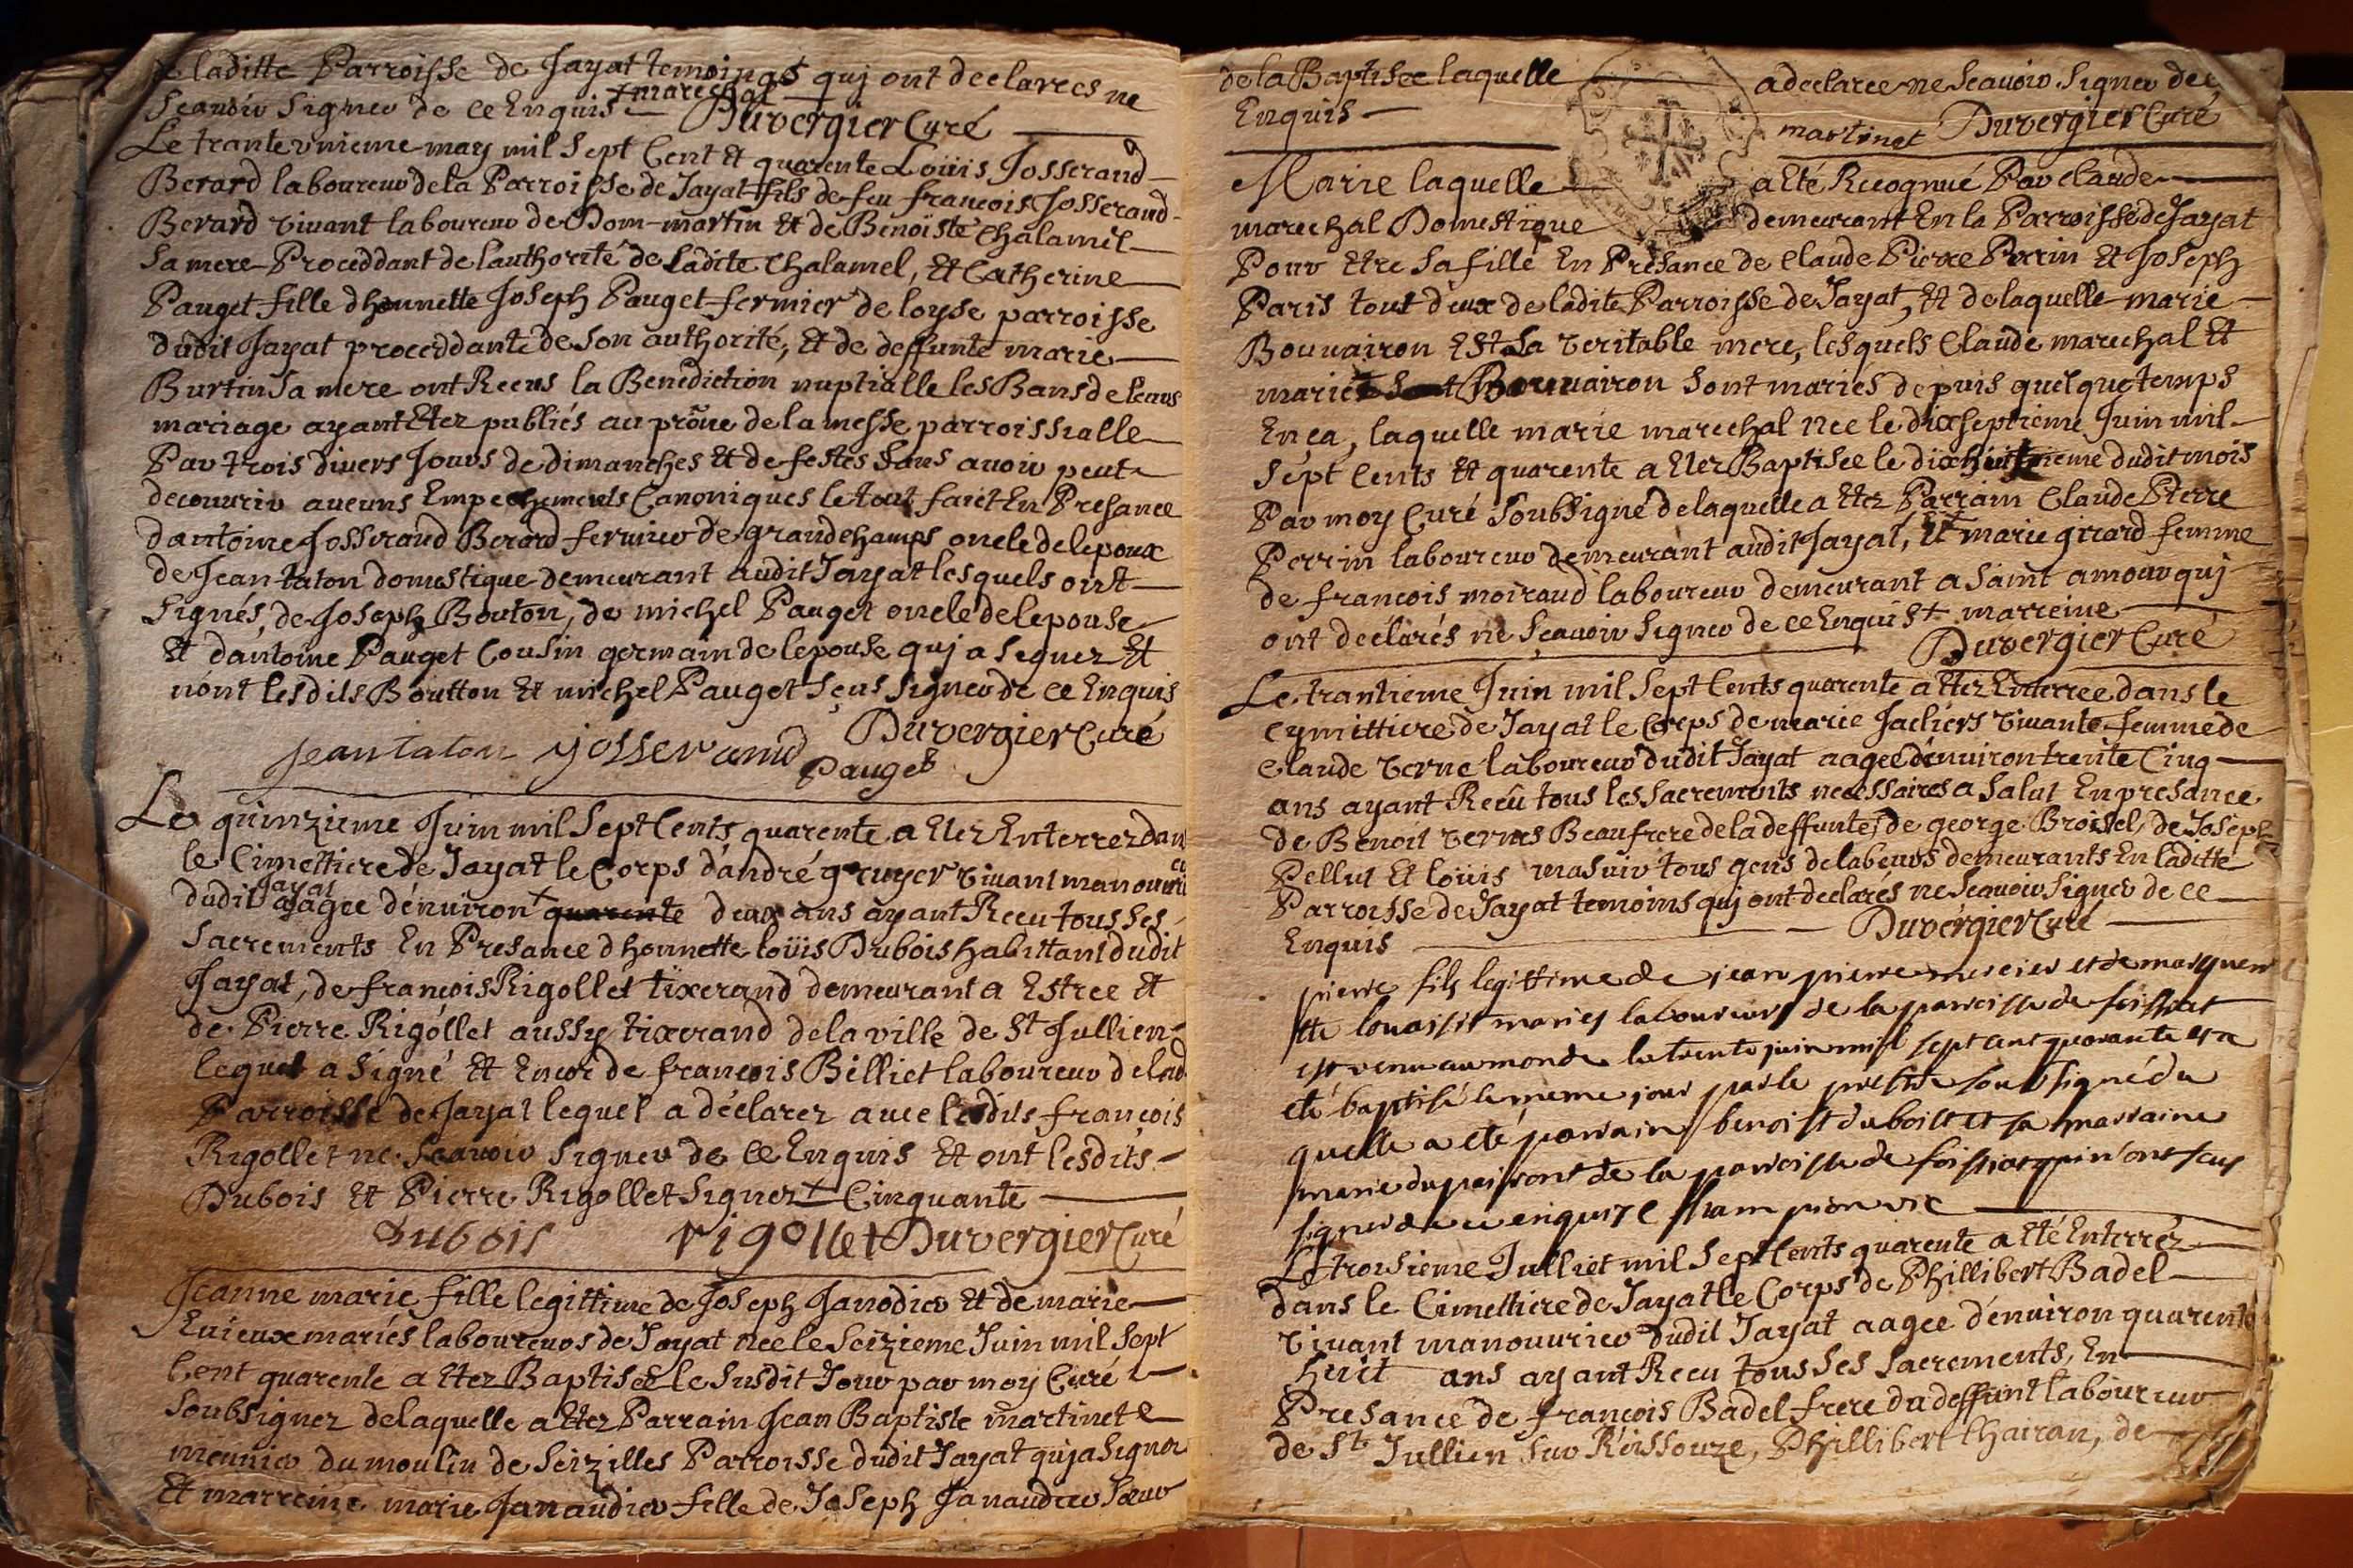 de laditte Parroisse de Jayat temoings quj ont declarees ne
Scauoir Signer de ce Enquis + marechal Duvergier Curé
Le trante vnieme may mil Sept Cent et quarente Loüis Josserand
Berard laboureur de la Parroisse de Jayat fils de feu francois Josserand
Berard viuant laboureur de Dom-martin Et de Benoiste Chalamel
Sa mere Proceddant de lauthorité de Ladite Chalamel, Et Catherine
Pauget fille dhonnette Joseph Pauget fermier de loyse parroisse
dudit Jayat proceddante de Son authorité, Et de deffunte marie
Burtin Sa mere ont Receus la Benediction nuptialle les Bans de leurs
mariage ayant Etez publiés au prône de la messe parroissialle
Par trois divers Jours de dimanches Et de festes Sans auoir peut
decouurir aucuns Empechements Canoniques le tout faict En Presance
dantoine Josserand Berard fermier de grandchamps oncle de lepoux
de Jean taton domestique demeurant audit Jayat lesquels ont
Signés, de Joseph Bouton, de michel Pauget oncle de lepouse
Et dantoine Pauget Cousin germain de lepouse quj a Signez Et
nont lesdits Boutton Et michel Pauget Sçus Signer de ce Enquis
Duvergier Curé
jean taton josserand Pauget
Le quinzieme Juin mil Sept Cents quarente a Etez Enterrez dans
le Cimettiere de Jayat le Corps dandré gruyer viuant manouurier
dudit Jayat aagee dénuiron + quarente deux ans ayant Receu tous Ses
Sacrements En Presance dhonnette loüis Dubois habittant dudit
Jayat, de françois Rigollet tixerand demeurant a Estree Et
de Pierre Rigollet aussy tixerand de la ville de St Jullien
lequel a Signé Et Encor de francois Billiet laboureur de lad
Parroisse de Jayat lequel a déclarez auec lesdits françois
Rigollet ne Scauoir Signer de ce Enquis Et ont lesdits
Dubois Et Pierre Rigollet Signez + Cinquante
Dubois rigollet Duvergier Curé
Jeanne marie fille legittime de Joseph Janodier Et de marie
Euieux mariés laboureurs de Jayat nee le Seizieme Juin mil Sept
Cent quarente a Etez Baptiseé le Susdit Jour par moy Curé
Soubsignez de laquelle a Etez Parrain Jean Baptiste martinet
meunier du moulin de Seizilles Parroisse dudit Jayat quj a Signez
Et marreine marie Janaudier fille de Joseph Janaudier Soeur
de la Baptisee laquelle a declaree ne Scauoir Signer de ce
Enquis martinet Duvergier Curé
Marie laquelle a Eté Recognué Par claude
marechal Domestique demeurant En la Parroisse de Jayat
Pour Etre Sa fille En Présance de Claude Pierre Perrin Et Joseph
Paris tout deux de ladite Parroisse de Jayat, Et de laquelle marie
Bouuairon Est Sa veritable mere, lesquels Claude marechal Et
marie Bouuairon Sont mariés depuis quelque temps
En ca, laquelle marie marechal nee le dixseptieme Juin mil
Sept Cents Et quarente a Etez Baptisee le dixhuitieme dudit mois
Par moy Curé Soubsigné de laquelle a Etez Parrain Claude Pierre
Perrin laboureur demeurant audit Jayat, Et + marie girard femme
de francois moiraud laboureur demeurant a Saint amour quj
ont déclarés ne Sçauoir Signer de ce Enquis + marreine
Duvergier Curé
Le trantieme Juin mil Sept Cents quarente a Etez Enterree dans le
Cymittiere de Jayat le Corps de marie Jacliers viuante femme de
Claude verne laboureur dudit Jayat aagee dénuiron trente Cinq
ans ayant Reçû tous les Sacrements necessaires a Salut En presance
de Benoit vernes Beaufrere de la deffunte, de george Broissel, de Joseph
Pellut Et loüis masuir tous gens de labeurs demeurants En laditte
Parroisse de Jayat temoins quj ont declarés ne Scauoir Signer de ce
Enquis Duvergier Curé
pierre fils legittime de jean pierre mercier et de marguen
tte louaisit mariés laboureurs de la paroisse de foissiat
est venu au monde le trente juin mil sept cent quarante et a
eté baptisé le meme jour par le prestre soubsigné du
quelle a eté parrain benoist duboist et sa marraine
marie dupaissont de la paroisse de foissiat qui n'ont sçus
signer de ce enquis Champion vic
Le troisieme Julliet mil Sept Cents quarente a Eté Enterréz
dans le Cimettiere de Jayat le Corps de Phillibert Badel
viuant manouurier dudit Jayat aagee dénuiron quarente
huit ans ayant Receu tous Ses Sacrements, En
Presance de françois Badel frere du deffunt laboureur
de St Jullien Sur Reissouze, Phillibert Chairan, de